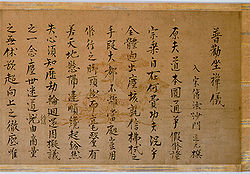 普勧坐禅儀
入宋傳法沙門道元撰
原夫道本圓通爭假修證
宗乘自在何費功夫況乎
全體逈出塵埃兮孰信拂拭之
手段大都不離當處兮豈用
修行之脚頭者乎然而毫釐有
差天地懸隔違順纔起紛然
失心須知歷劫輪廻還因擬議
之一念塵世迷道復由商量
之無休欲超向上之徹底唯